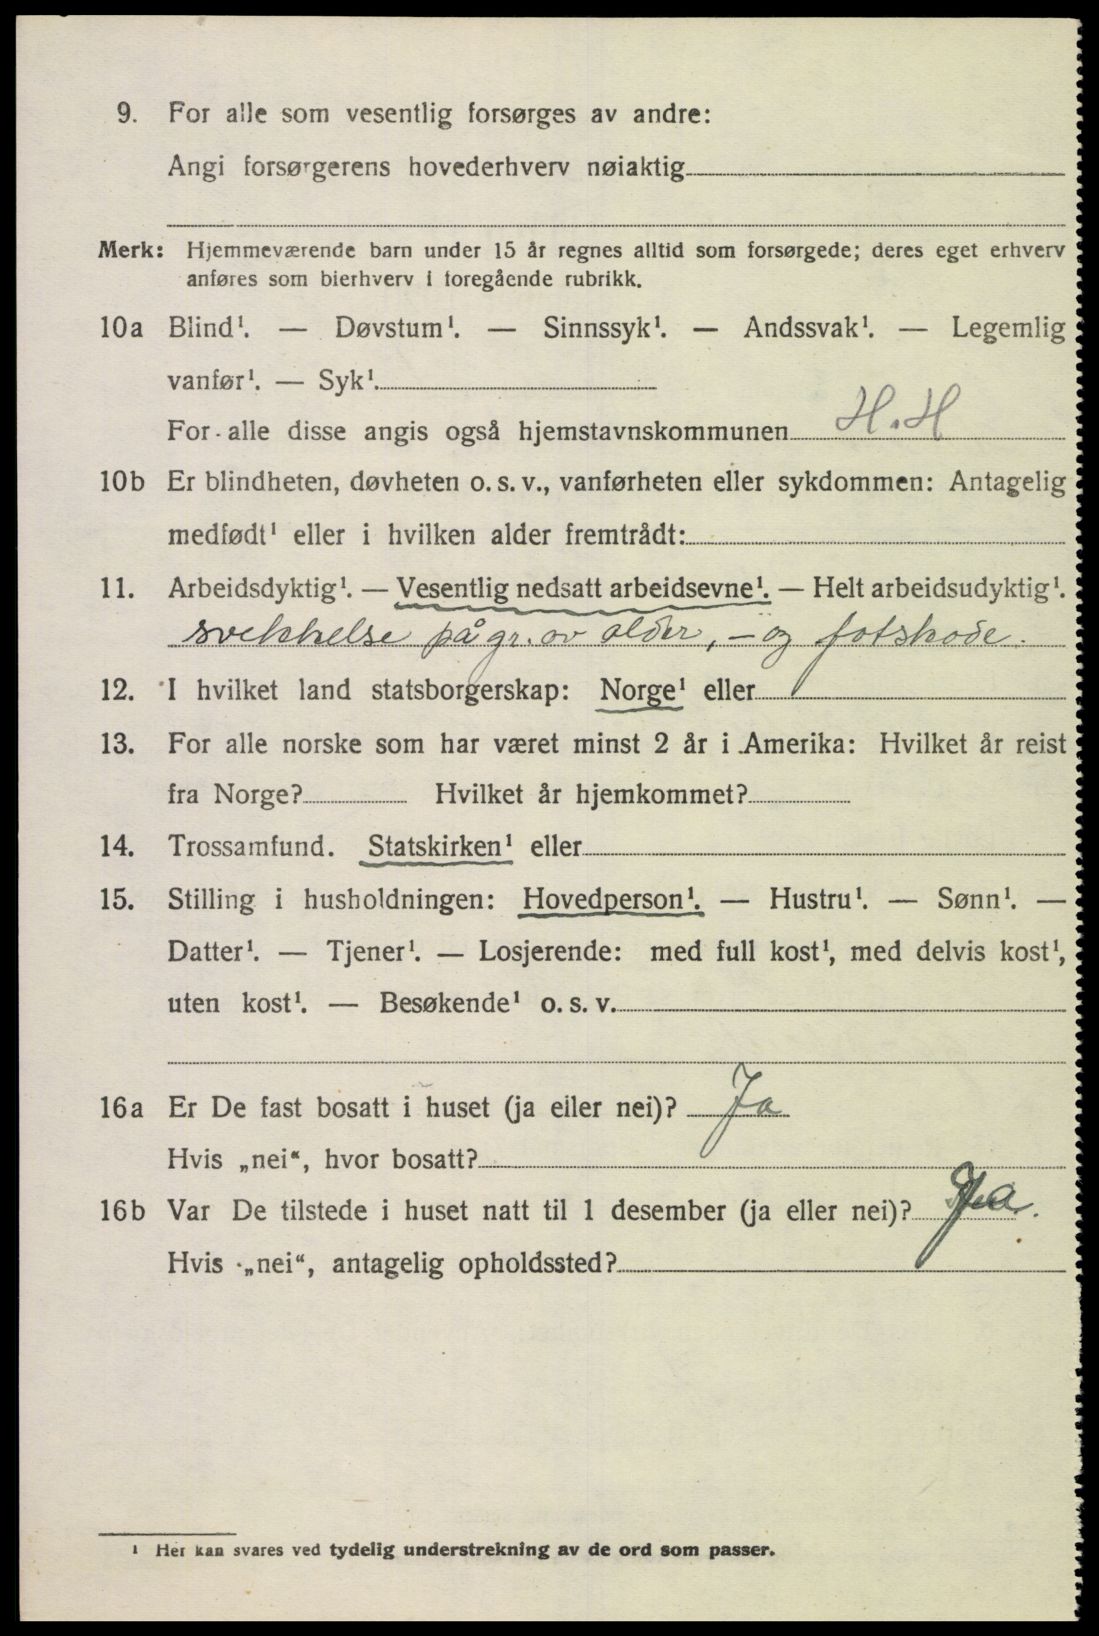 9. For alle som vesentlig forsørges av andre:
Angi forsørgerens hovederhverv nøiaktig
Merk: Hjemmeværende barn under 15 år regnes alltid som forsørgede; deres eget erhverv
anføres som bierhverv i foregående rubrikk.
10a Blind¹. — Døvstum¹. — Sinnssyk¹. — Andssvak¹. — Legemlig
vanfør¹. — Syk¹.
For alle disse angis også hjemstavnskommunen H.H
10b Er blindheten, døvheten o. s. v., vanførheten eller sykdommen: Antagelig
medfødt¹ eller i hvilken alder fremtrådt:
11. Arbeidsdyktig¹. — Vesentlig nedsatt arbeidsevne¹. — Helt arbeidsudyktig¹.
svekkelse på gr. av alder, – og fotskade.
12. I hvilket land statsborgerskap: Norge¹ eller
13. For alle norske som har været minst 2 år i Amerika: Hvilket år reist
fra Norge? Hvilket år hjemkommet?
14. Trossamfund. Statskirken¹ eller
15. Stilling i husholdningen: Hovedperson¹. — Hustru¹. — Sønn¹. —
Datter¹. — Tjener¹. — Losjerende: med full kost¹, med delvis kost¹,
uten kost¹. — Besøkende¹ o. s. v.
16a Er De fast bosatt i huset (ja eller nei)? Ja
Hvis „nei“, hvor bosatt?
16b Var De tilstede i huset natt til 1 desember (ja eller nei)? Ja.
Hvis „nei“, antagelig opholdssted?
¹ Her kan svares ved tydelig understrekning av de ord som passer.